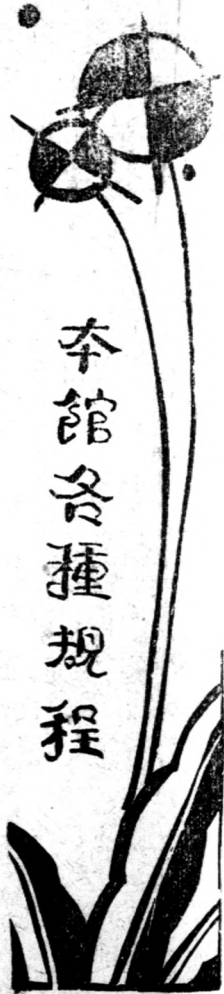 本館各種規程